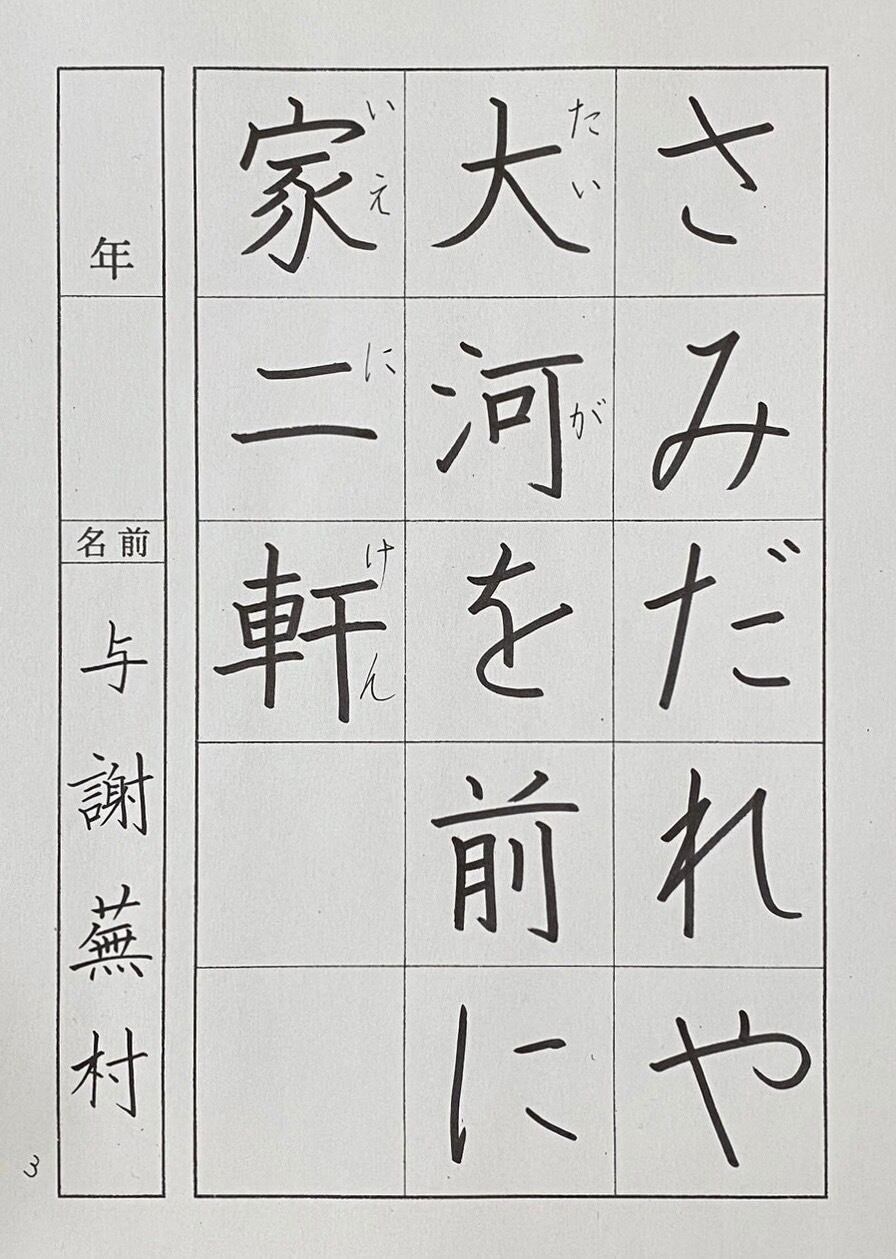 さみだれや
大河を前に
たいが
家二軒
いえにけん
年
名前
与謝蕪村
3